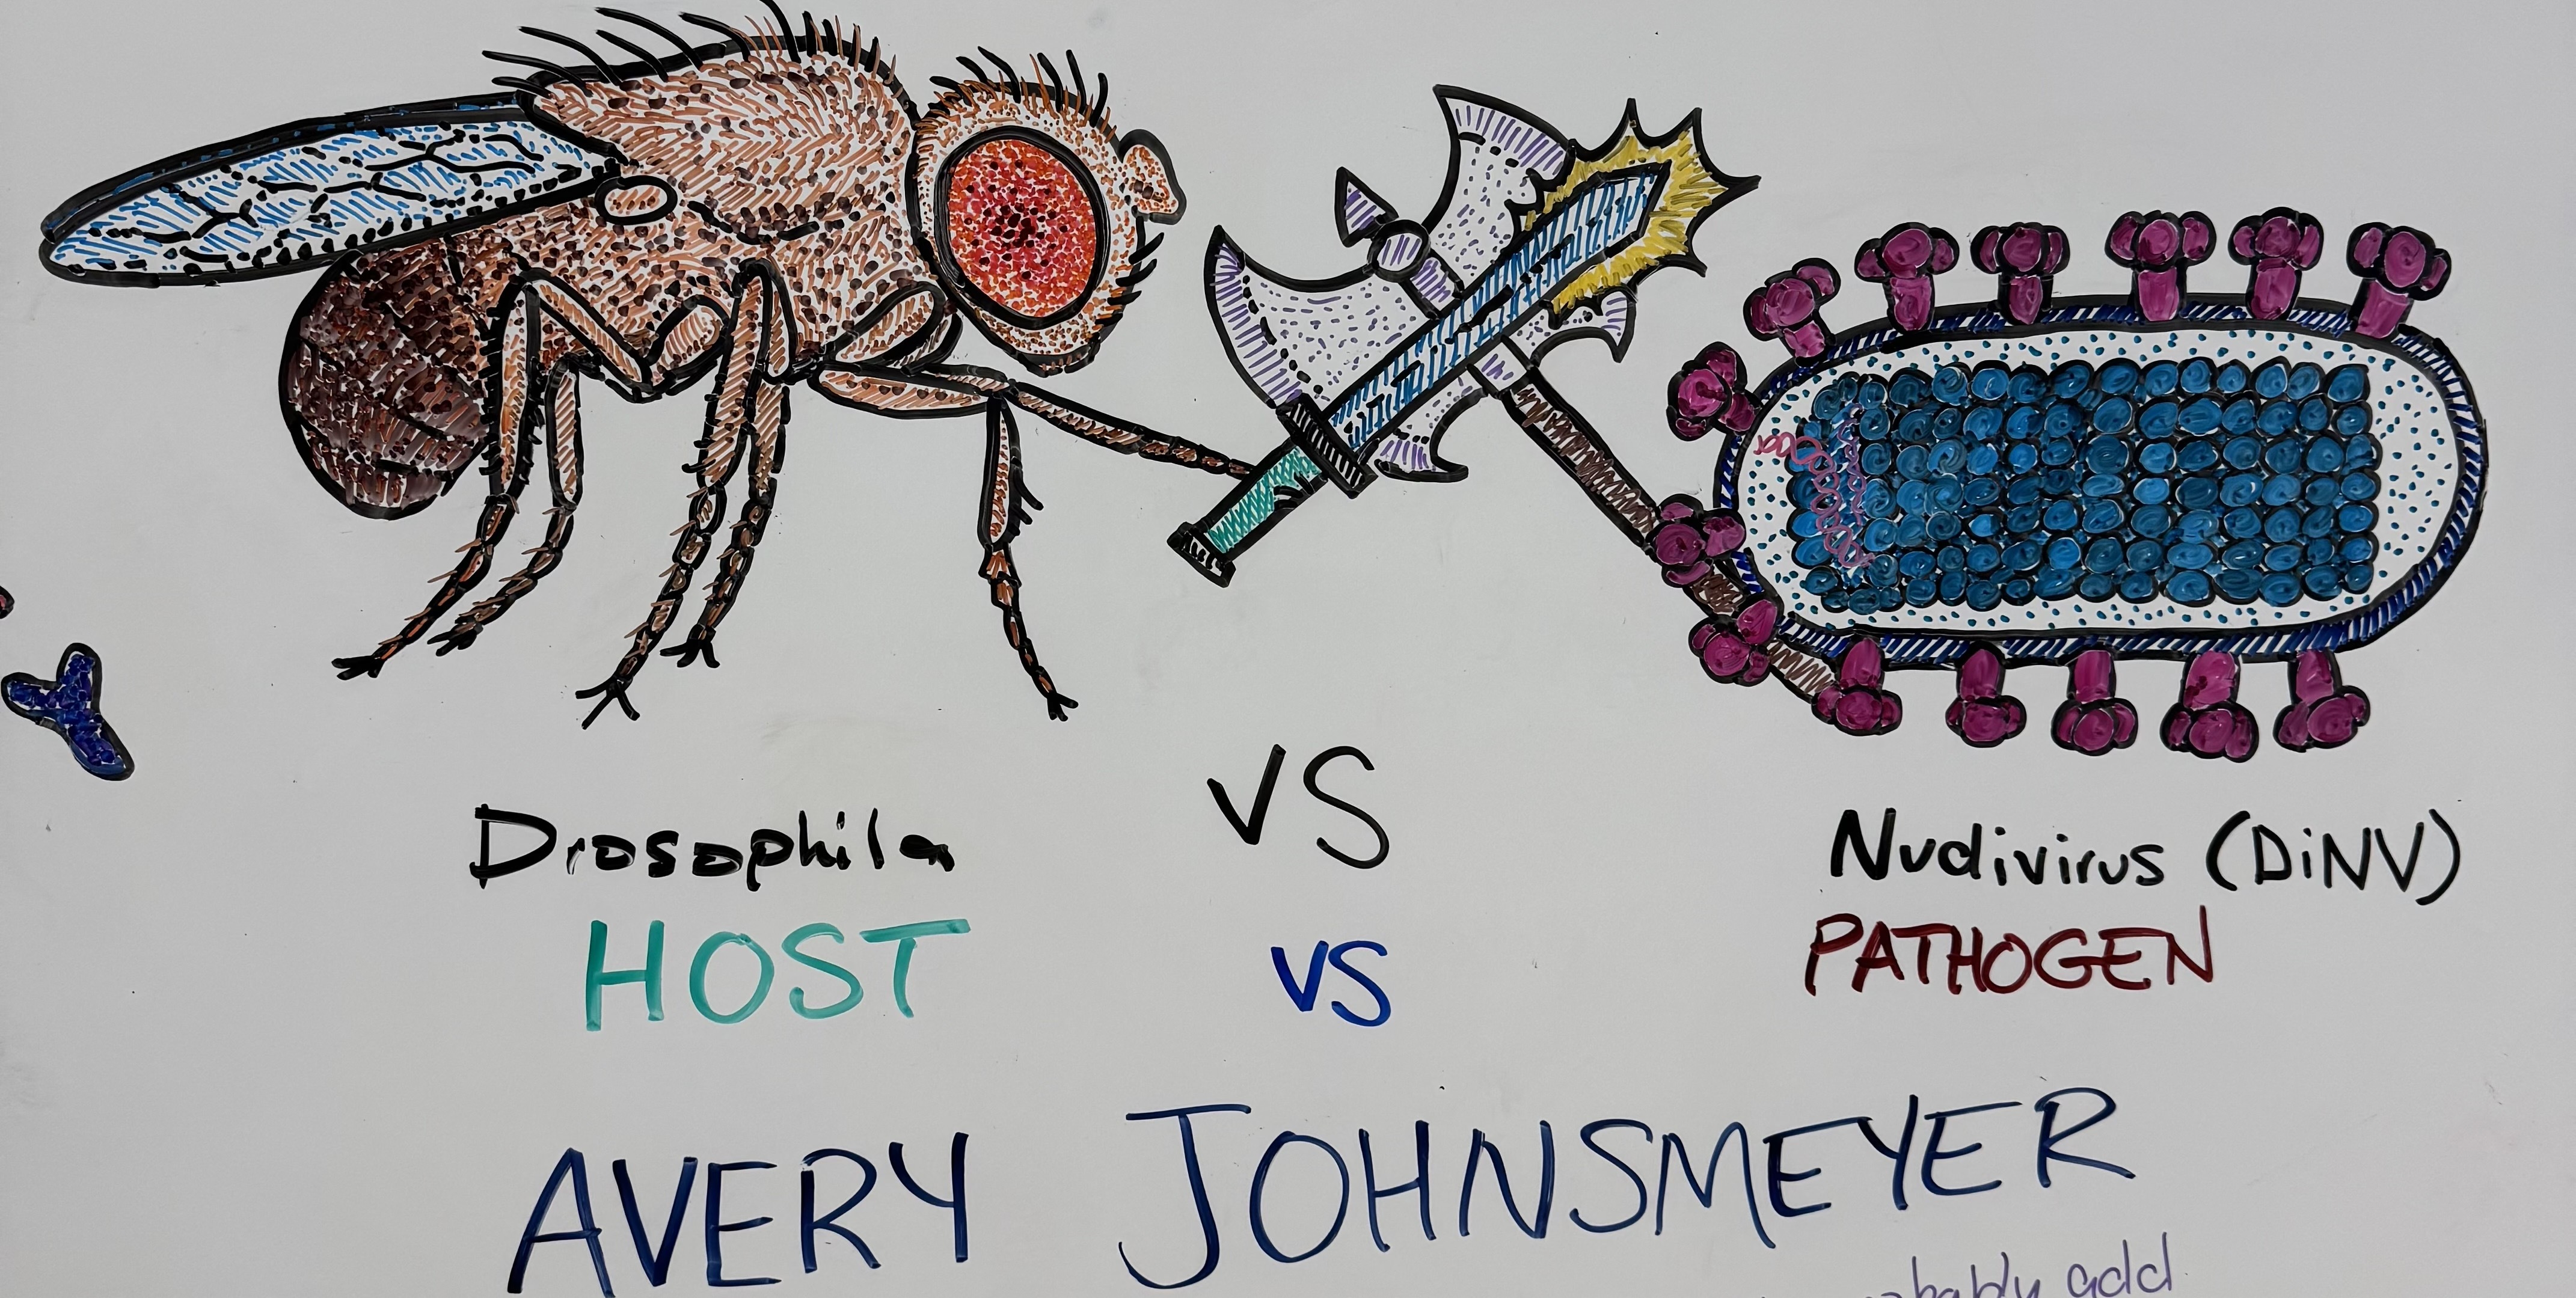 Drosophila vs Nudivirus (DiNV)
HOST vs PATHOGEN
AVERY JOHNSMEYER
add